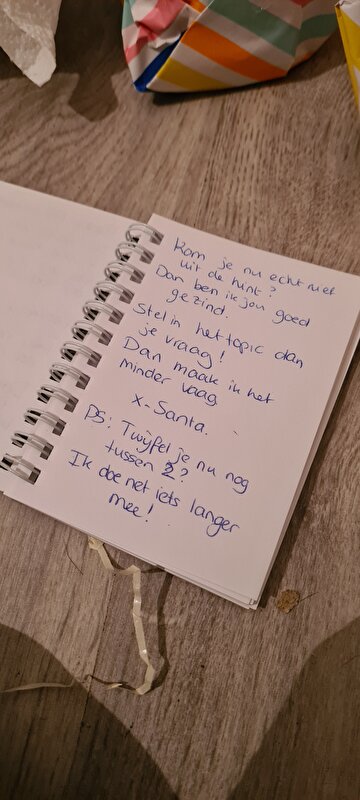 Kom je nu echt niet
uit de hint?
Dan ben ik jou goed
gezind.
Stel in het topic dan
je vraag!
Dan maak ik het
minder vaag.
x-Santa.
PS: Twijfel je nu nog
tussen 2?
Ik doe net iets langer
mee!